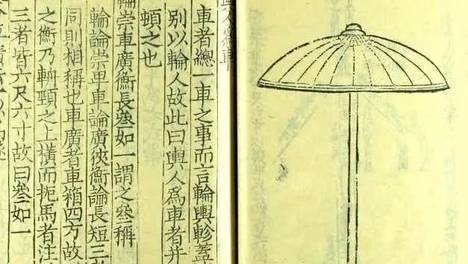 車者總一車之事而言輪輿軫蓋
別以輪人故此曰輿人爲車者并
頓之也
輪崇車廣衡長參如一謂之參稱
輪論崇車論廣彼衡論長短三
同則相稱也車廣者車箱四方故
之衡乃輈頸之上橫而扼馬者注
三者皆六尺六寸故曰參如一